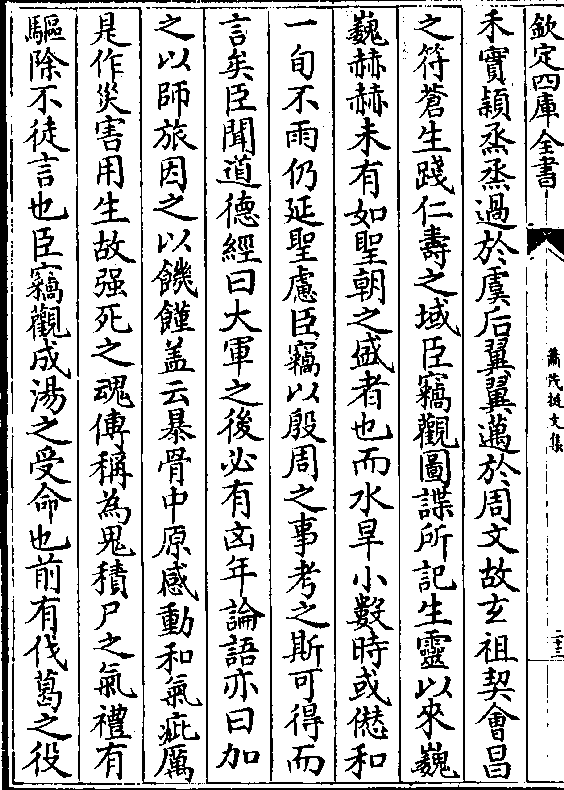 欽定四庫全書
蕭茂挺文集
二十三
禾實穎烝烝過於虞后翼翼邁於周文故玄祖契會昌
之符蒼生踐仁壽之域臣竊觀圖諜所記生靈以來巍
巍赫赫未有如聖朝之盛者也而水旱小數時或愆和
一旬不雨仍延聖慮臣竊以殷周之事考之斯可得而
言矣臣聞道德經曰大軍之後必有凶年論語亦曰加
之以師旅因之以饑饉盖云暴骨中原感動和氣疵厲
是作災害用生故强死之魂傅稱為鬼積尸之氣禮有
驅除不徒言也臣竊觀成湯之受命也前有伐葛之役